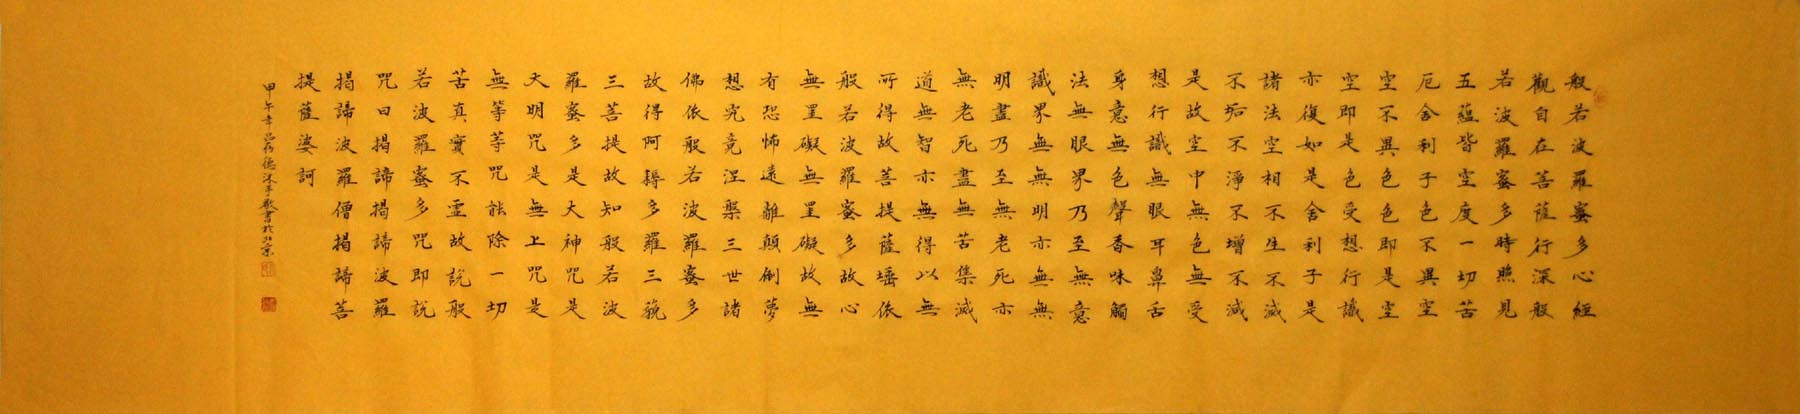 般若波羅蜜多心經
觀自在菩薩行深般
若波羅蜜多時照見
五蘊皆空度一切苦
厄舍利子色不異空
空不異色色即是空
空即是色受想行識
亦復如是舍利子是
諸法空相不生不滅
不垢不淨不增不減
是故空中無色無受
想行識無眼耳鼻舌
身意無色聲香味觸
法無眼界乃至無意
識界無無明亦無無
明盡乃至無老死亦
無老死盡無苦集滅
道無智亦無得以無
所得故菩提薩埵依
般若波羅蜜多故心
無罣礙無罣礙故無
有恐怖遠離顛倒夢
想究竟涅槃三世諸
佛依般若波羅蜜多
故得阿耨多羅三藐
三菩提故知般若波
羅蜜多是大神咒是
大明咒是無上咒是
無等等咒能除一切
苦真實不虛故說般
若波羅蜜多咒即說
咒曰揭諦揭諦波羅
揭諦波羅僧揭諦菩
提薩婆訶
甲午年 德沐手敬書於北京